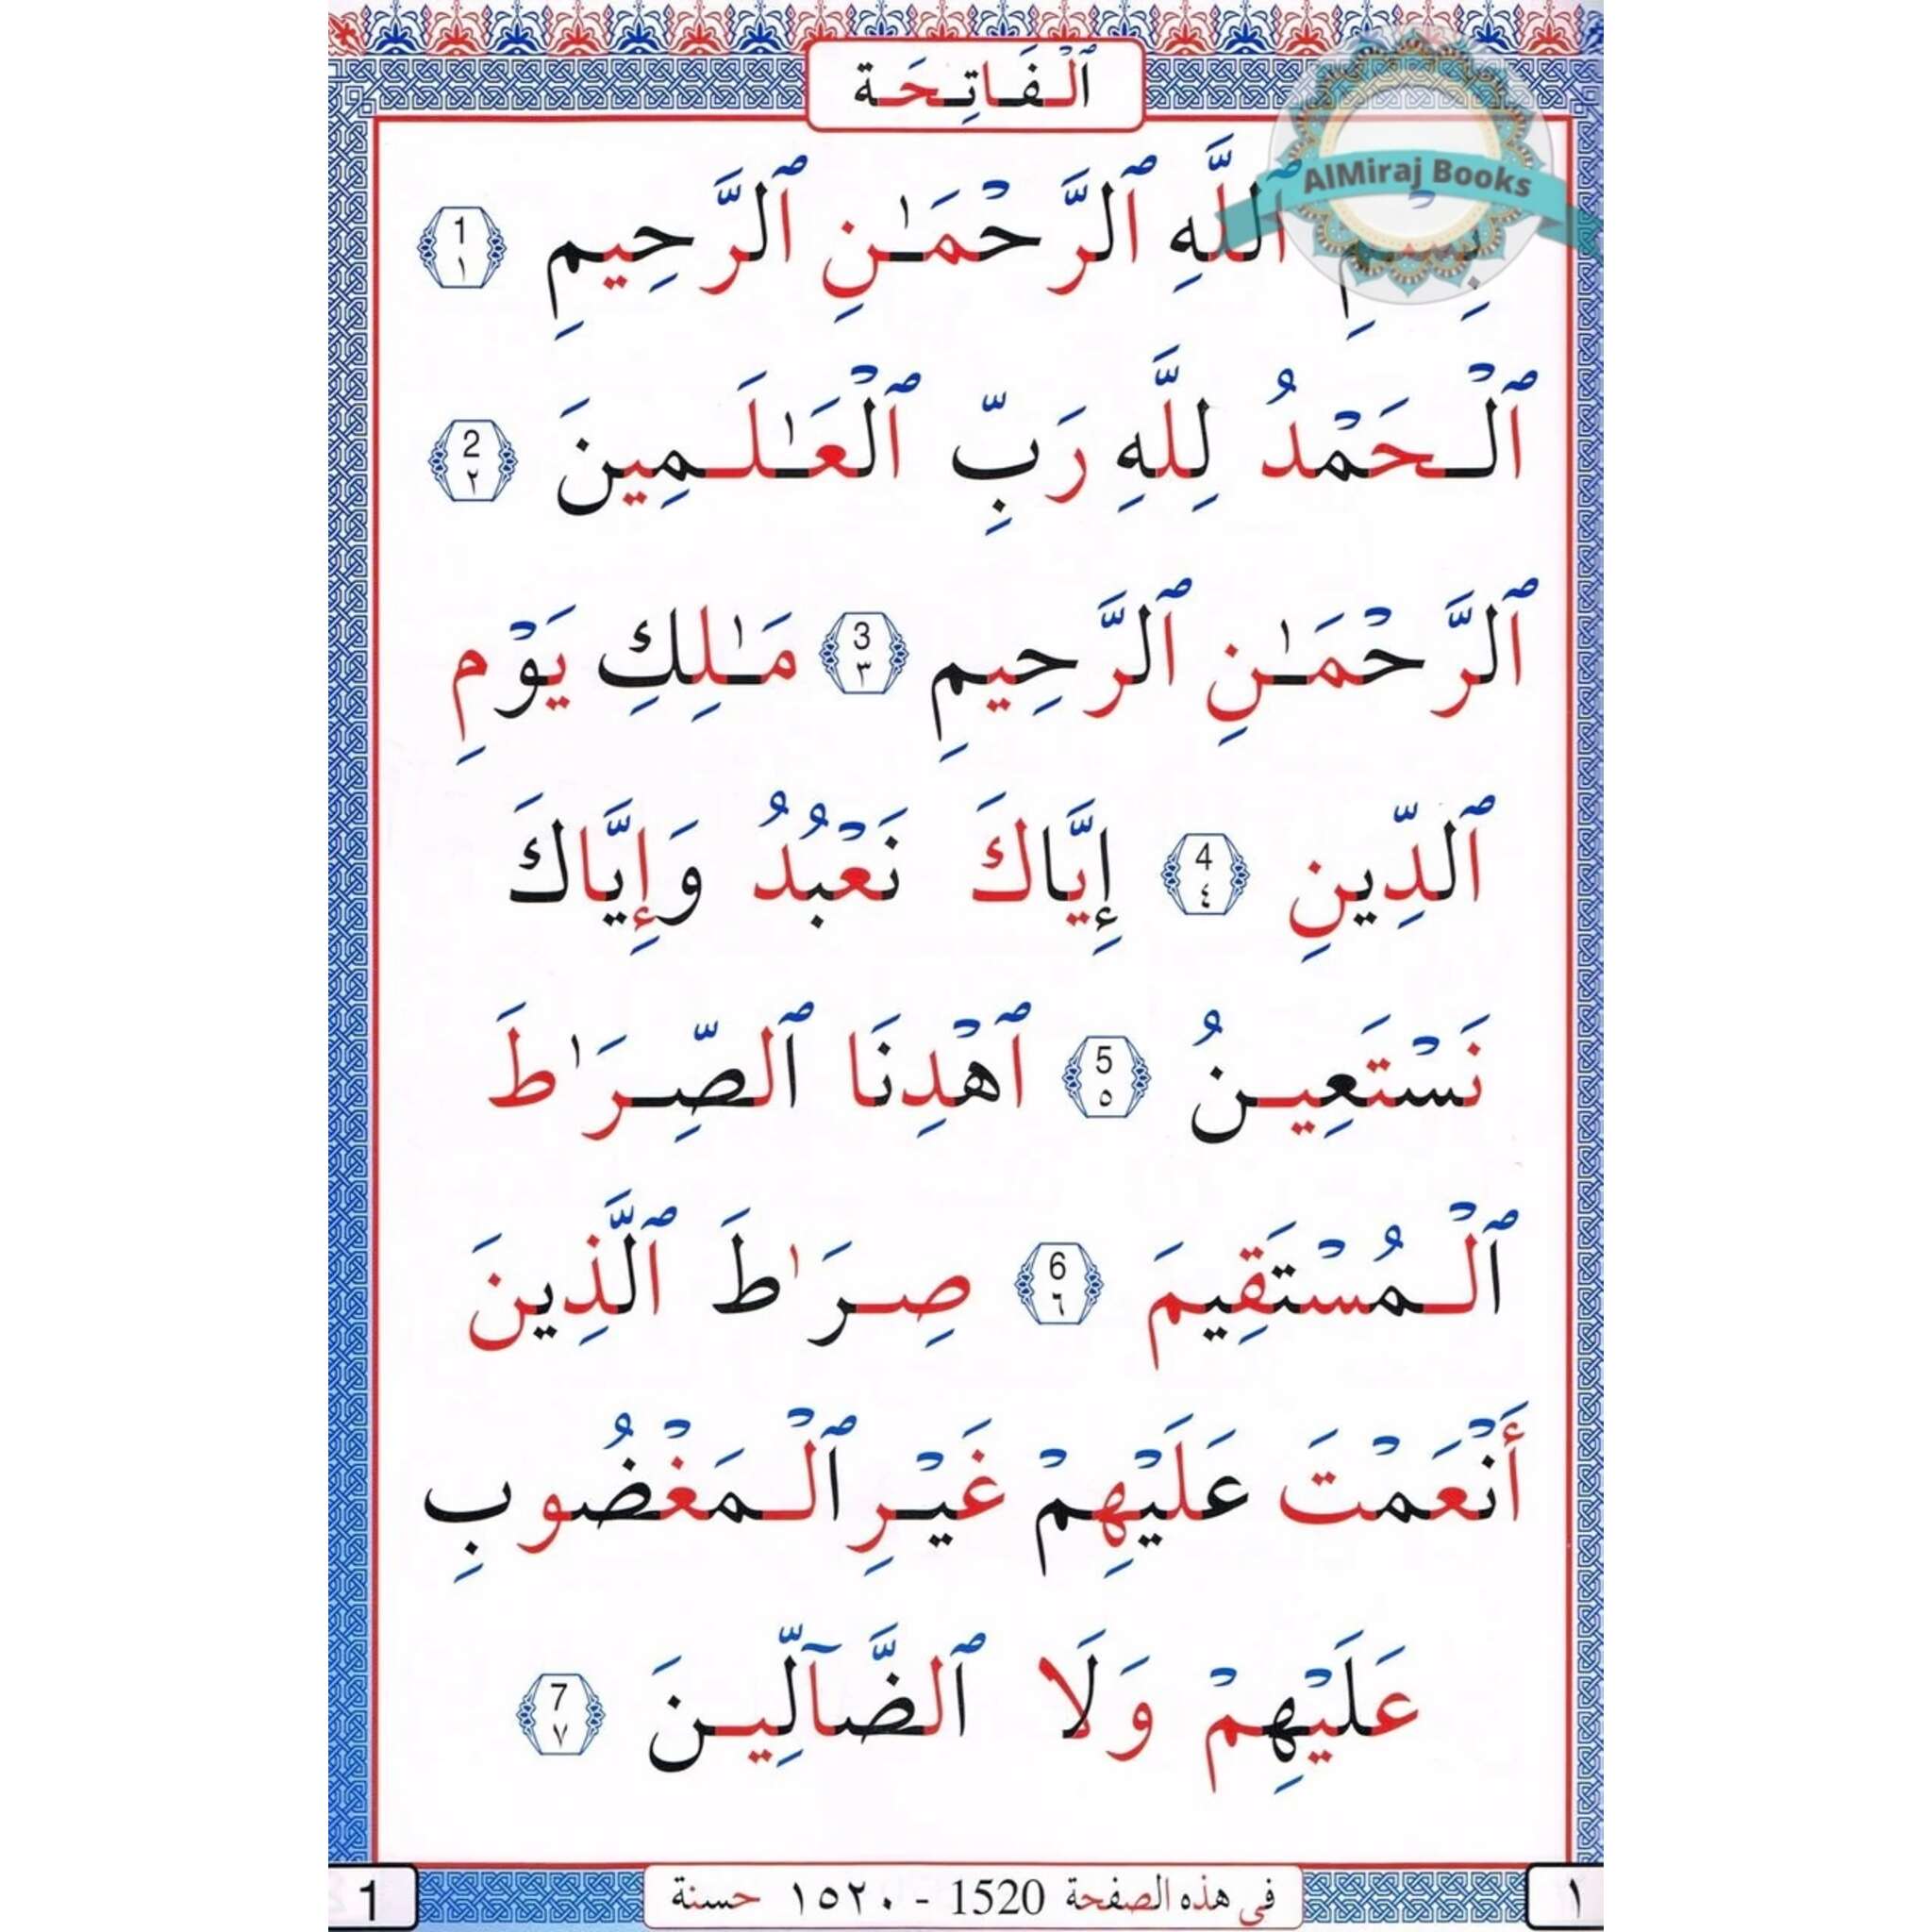 ٱلْفَاتِحَة
AlMiraj Books
بِسْمِ ٱللَّهِ ٱلرَّحْمَٰنِ ٱلرَّحِيمِ 1 ١
ٱلْحَمْدُ لِلَّهِ رَبِّ ٱلْعَٰلَمِينَ 2 ٢
ٱلرَّحْمَٰنِ ٱلرَّحِيمِ 3 ٣ مَٰلِكِ يَوْمِ
ٱلدِّينِ 4 ٤ إِيَّاكَ نَعْبُدُ وَإِيَّاكَ
نَسْتَعِينُ 5 ٥ ٱهْدِنَا ٱلصِّرَٰطَ
ٱلْمُسْتَقِيمَ 6 ٦ صِرَٰطَ ٱلَّذِينَ
أَنْعَمْتَ عَلَيْهِمْ غَيْرِ ٱلْمَغْضُوبِ
عَلَيْهِمْ وَلَا ٱلضَّآلِّينَ 7 ٧
١ في هذه الصفحة 1520 - ١٥٢٠ حسنة 1